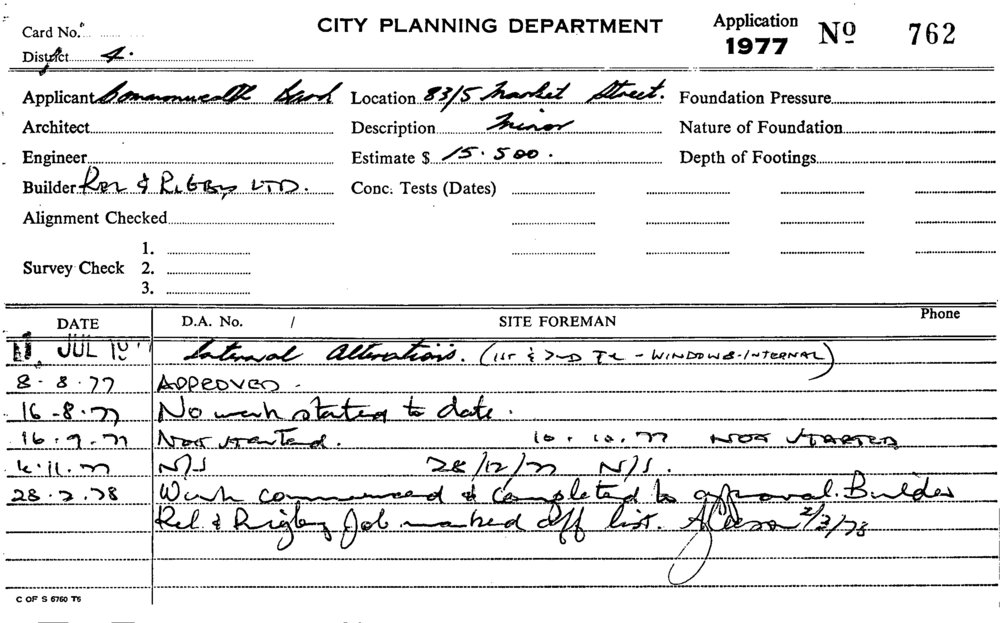 CITY PLANNING DEPARTMENT
Application
1977 Nº 762
Card No.
District 4.
Applicant Commonwealth Bank Location 83/5 Market Street. Foundation Pressure
Architect Description Minor Nature of Foundation
Engineer Estimate $ 15.500. Depth of Footings
Builder & Rigby LTD. Conc. Tests (Dates)
Alignment Checked
1.
Survey Check 2.
3.
DATE D.A. No. / SITE FOREMAN Phone
JUL Internal Alterations. (1ST & 2ND FL - WINDOWS-INTERNAL)
8-8-77 APPROVED -
16-8-77 No work started to date.
16.9.77 Not started. 10.10.77 NOT STARTED
4.11.77 N/S 28/12/77 N/S.
28.2.78 Work commenced & completed to approval. Builder
Rel & Rigby Job marked off list. 2/3/78
C OF S 6760 T5